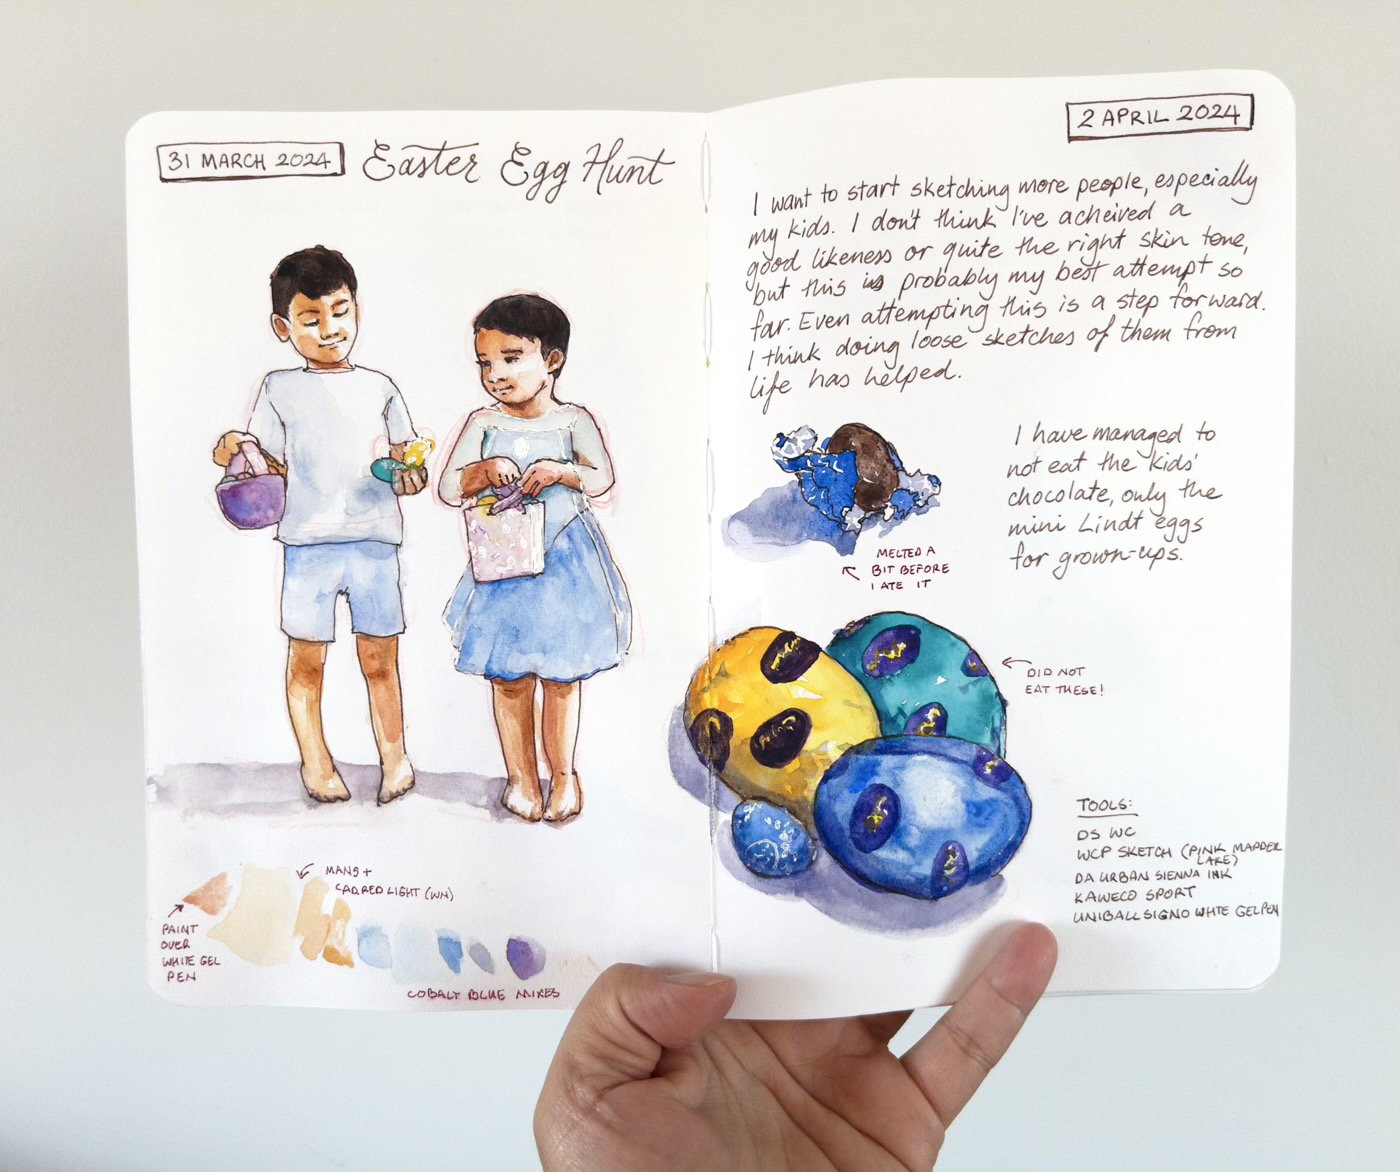 31 MARCH 2024
Easter Egg Hunt
MANS +
CAD RED LIGHT (WN)
PAINT
OVER
WHITE GEL
PEN
COBALT BLUE MIXES
2 APRIL 2024
I want to start sketching more people, especially
my kids. I don't think I've acheived a
good likeness or quite the right skin tone,
but this is probably my best attempt so
far. Even attempting this is a step forward.
I think doing loose sketches of them from
life has helped.
I have managed to
not eat the kids'
chocolate, only the
mini Lindt eggs
for grown-ups.
MELTED A
BIT BEFORE
I ATE IT
DID NOT
EAT THESE!
TOOLS:
DS WC
WCP SKETCH (PINK MADDER
LAKE)
DA URBAN SIENNA INK
KAWECO SPORT
UNIBALL SIGNO WHITE GEL PEN